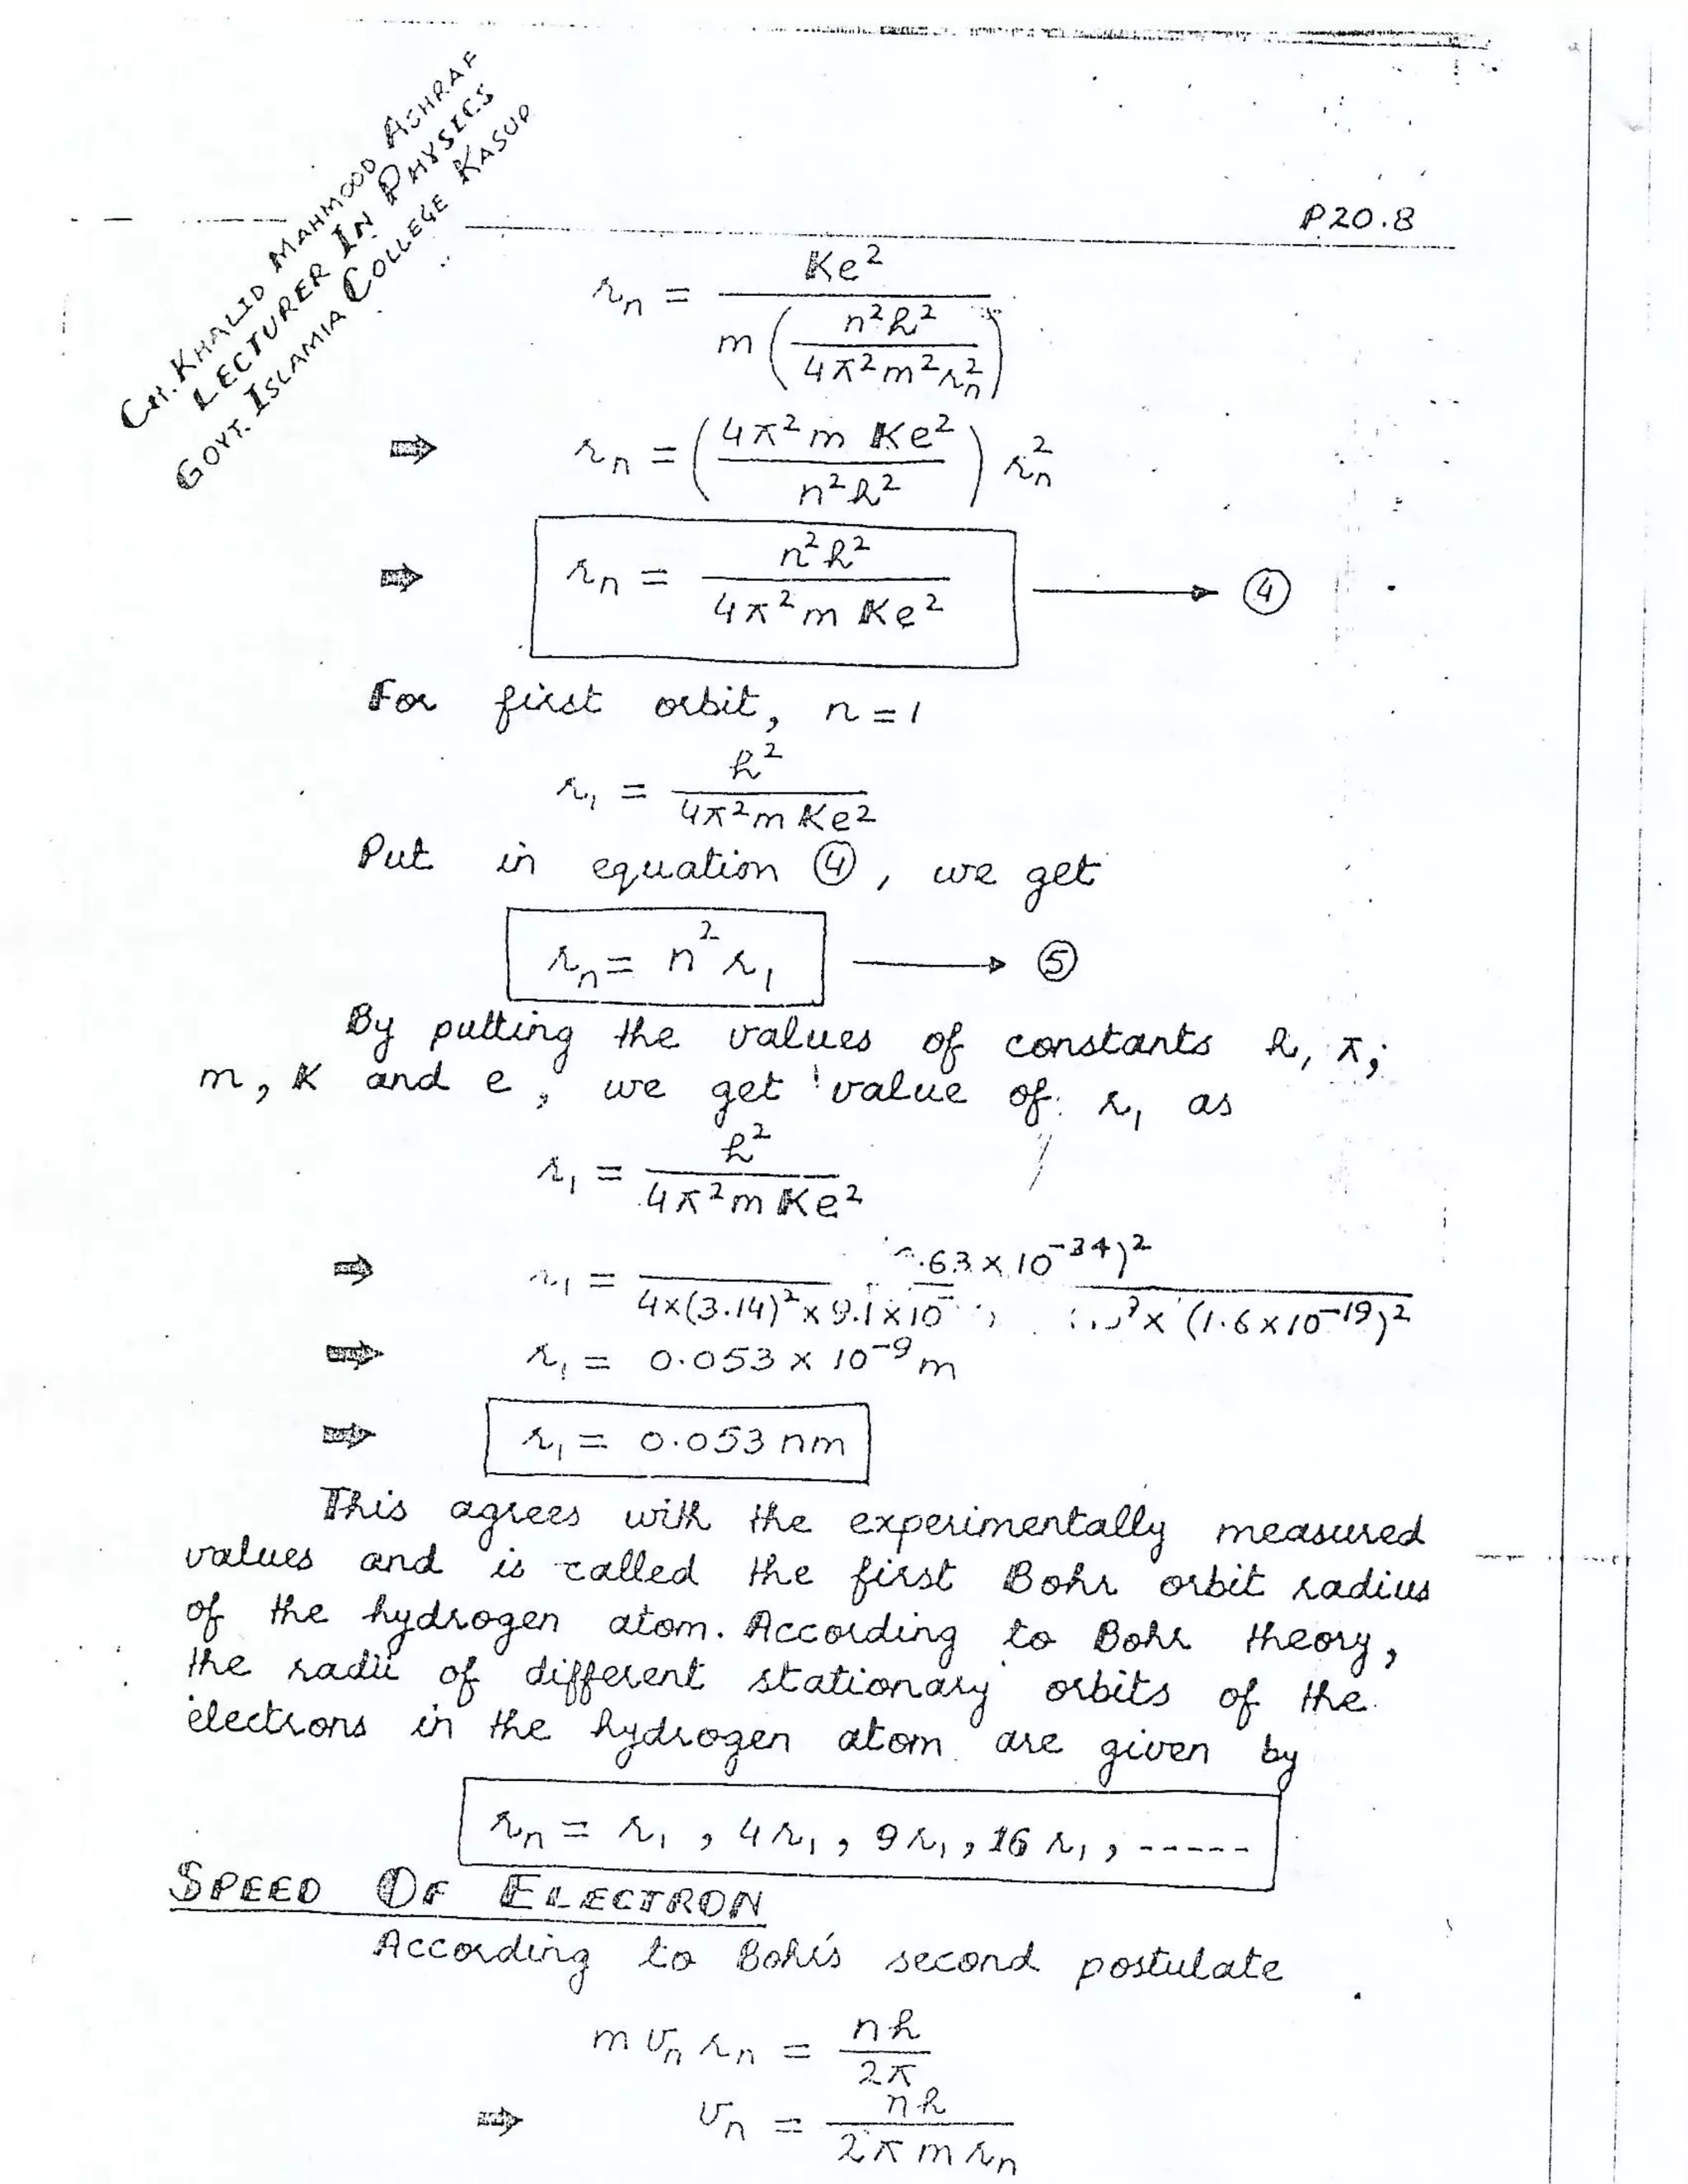 CH. KHALID MAHMOOD ASHRAF
LECTURER IN PHYSICS
GOVT. ISLAMIA COLLEGE KASUR
P20.8
rₙ = Ke² / m (n²h² / 4π²m²rₙ²)
⇒ rₙ = (4π²m Ke² / n²h²) rₙ²
⇒ rₙ = n²h² / 4π²m Ke² ⟶ ④
For first orbit, n = 1
r₁ = h² / 4π²m Ke²
Put in equation ④, we get
rₙ = n² r₁ ⟶ ⑤
By putting the values of constants h, π,
m, K and e, we get value of r₁ as
r₁ = h² / 4π²m Ke²
⇒ r₁ = .63 × 10⁻³⁴)² / 4×(3.14)² × 9.1×10 × (1.6×10⁻¹⁹)²
⇒ r₁ = 0.053 × 10⁻⁹ m
⇒ r₁ = 0.053 nm
This agrees with the experimentally measured
values and is called the first Bohr orbit radius
of the hydrogen atom. According to Bohr theory,
the radii of different stationary orbits of the
electrons in the hydrogen atom are given by
rₙ = r₁, 4r₁, 9r₁, 16r₁, -----
SPEED OF ELECTRON
According to Bohr's second postulate
m vₙ rₙ = nh / 2π
⇒ vₙ = nh / 2π m rₙ